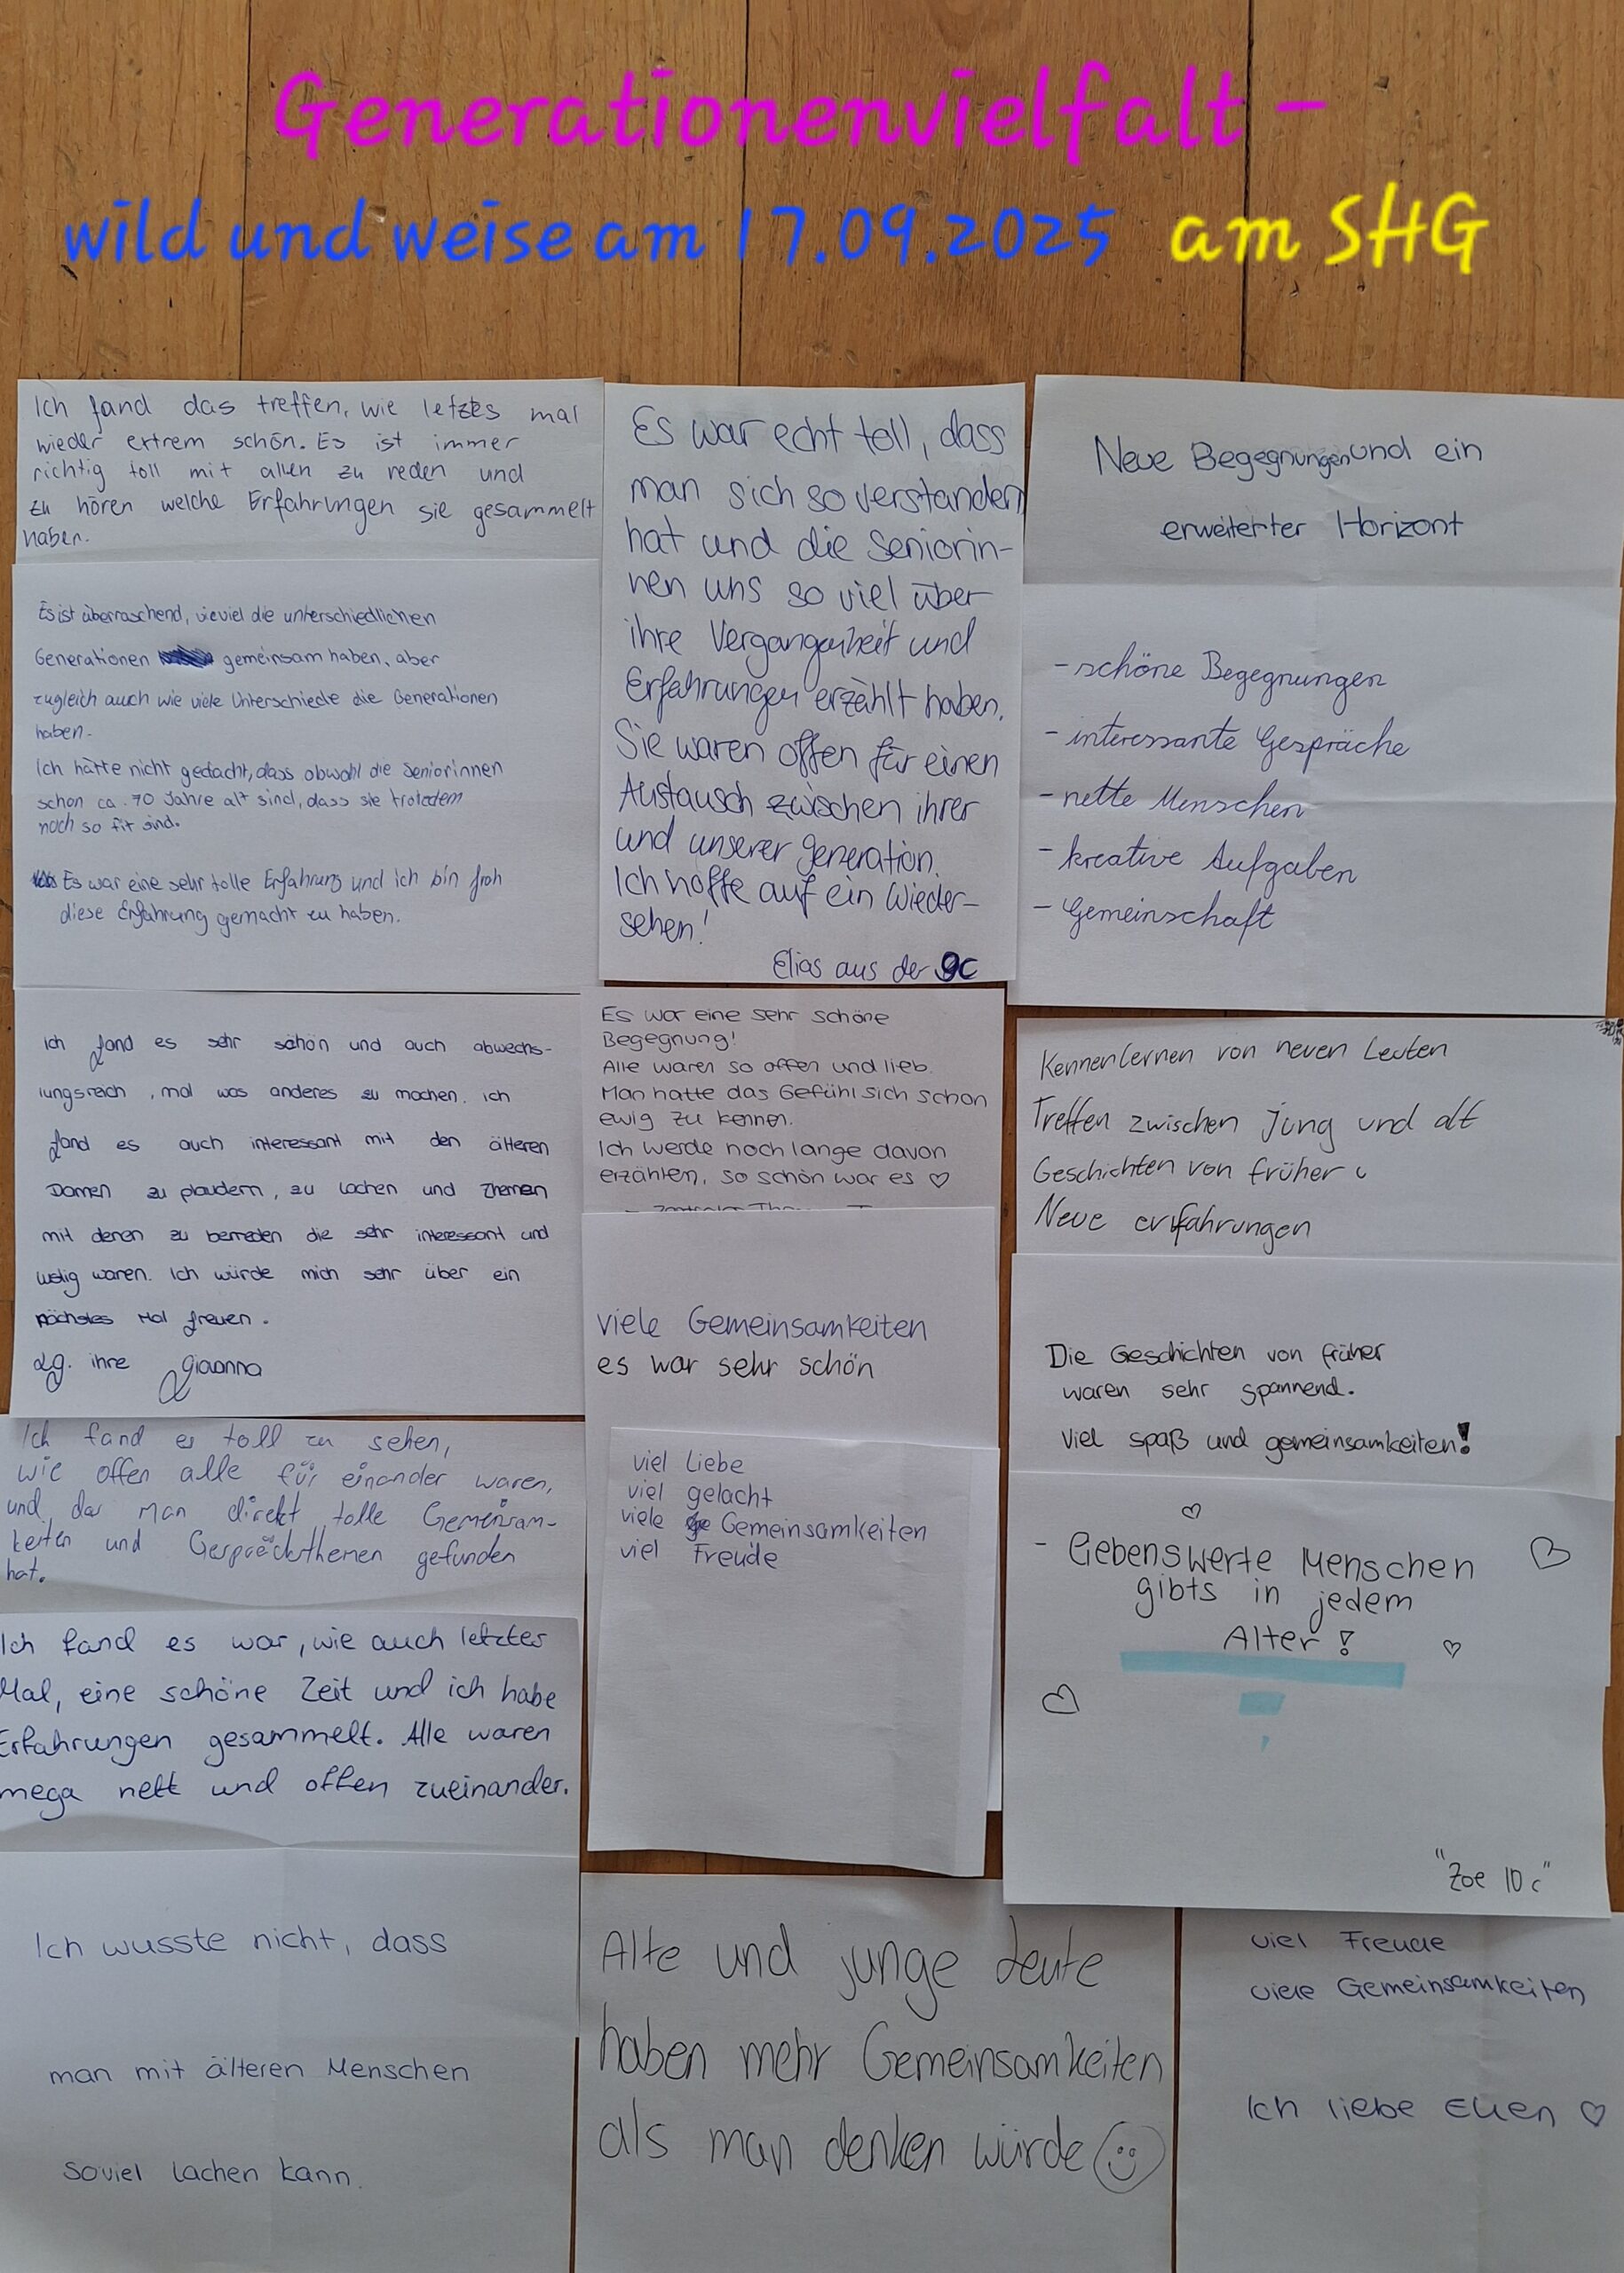 Generationenvielfalt -
wild und weise am 17.09.2025 am SHG
Ich fand das treffen, wie letztes mal
wieder extrem schön. Es ist immer
richtig toll mit allen zu reden und
zu hören welche Erfahrungen sie gesammelt
haben.
Es ist überraschend, vieviel die unterschiedlichen
Generationen gemeinsam haben, aber
zugleich auch wie viele Unterschiede die Generationen
haben.
Ich hätte nicht gedacht, dass obwohl die Seniorinnen
schon ca. 70 Jahre alt sind, dass sie trotzdem
noch so fit sind.
Es war eine sehr tolle Erfahrung und ich bin froh
diese Erfahrung gemacht zu haben.
ich fand es sehr schön und auch abwechs-
lungsreich, mal was anderes zu machen. ich
fand es auch interessant mit den älteren
Damen zu plaudern, zu lachen und Themen
mit denen zu berreden die sehr interessant und
lustig waren. Ich würde mich sehr über ein
nächstes Mal freuen.
Lg. ihre Giovanna
Ich fand es toll zu sehen,
wie offen alle für einander waren,
und das man direkt tolle Gemeinsam-
keiten und Gesprächsthemen gefunden
hat.
Ich fand es war, wie auch letztes
Mal, eine schöne Zeit und ich habe
Erfahrungen gesammelt. Alle waren
mega nett und offen zueinander.
Ich wusste nicht, dass
man mit älteren Menschen
soviel lachen kann.
Es war echt toll, dass
man sich so verstanden
hat und die Seniorin-
nen uns so viel über
ihre Vergangenheit und
Erfahrungen erzählt haben.
Sie waren offen für einen
Austausch zwischen ihrer
und unserer generation.
Ich hoffe auf ein Wieder-
sehen!
Elias aus der 9c
Es war eine sehr schöne
Begegnung!
Alle waren so offen und lieb.
Man hatte das Gefühl sich schon
ewig zu kennen.
Ich werde noch lange davon
erzählen, so schön war es ♡
viele Gemeinsamkeiten
es war sehr schön
viel Liebe
viel gelacht
viele Gemeinsamkeiten
viel Freude
Alte und junge Leute
haben mehr Gemeinsamkeiten
als man denken würde ☺
Neue Begegnungen und ein
erweiterter Horizont
- schöne Begegnungen
- interessante Gespräche
- nette Menschen
- kreative Aufgaben
- Gemeinschaft
Kennenlernen von neuen Leuten
Treffen zwischen jung und alt
Geschichten von früher
Neue erfahrungen
Die Geschichten von früher
waren sehr spannend.
Viel spaß und gemeinsamkeiten!
♡
- Liebenswerte Menschen ♡
gibts in jedem
Alter! ♡
♡
"Zoe 10c"
viel Freude
viele Gemeinsamkeiten
Ich liebe Euen ♡